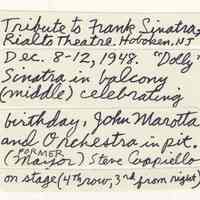 Tribute to Frank Sinatra,
Rialto Theatre. Hoboken, NJ
Dec. 8-12, 1948. "Dolly"
Sinatra in balcony
(middle) celebrating
birthday, John Marotta
and Orchestra in pit.
FORMER
(Mayor) Steve Cappiello
on stage (4th row, 3rd from right)